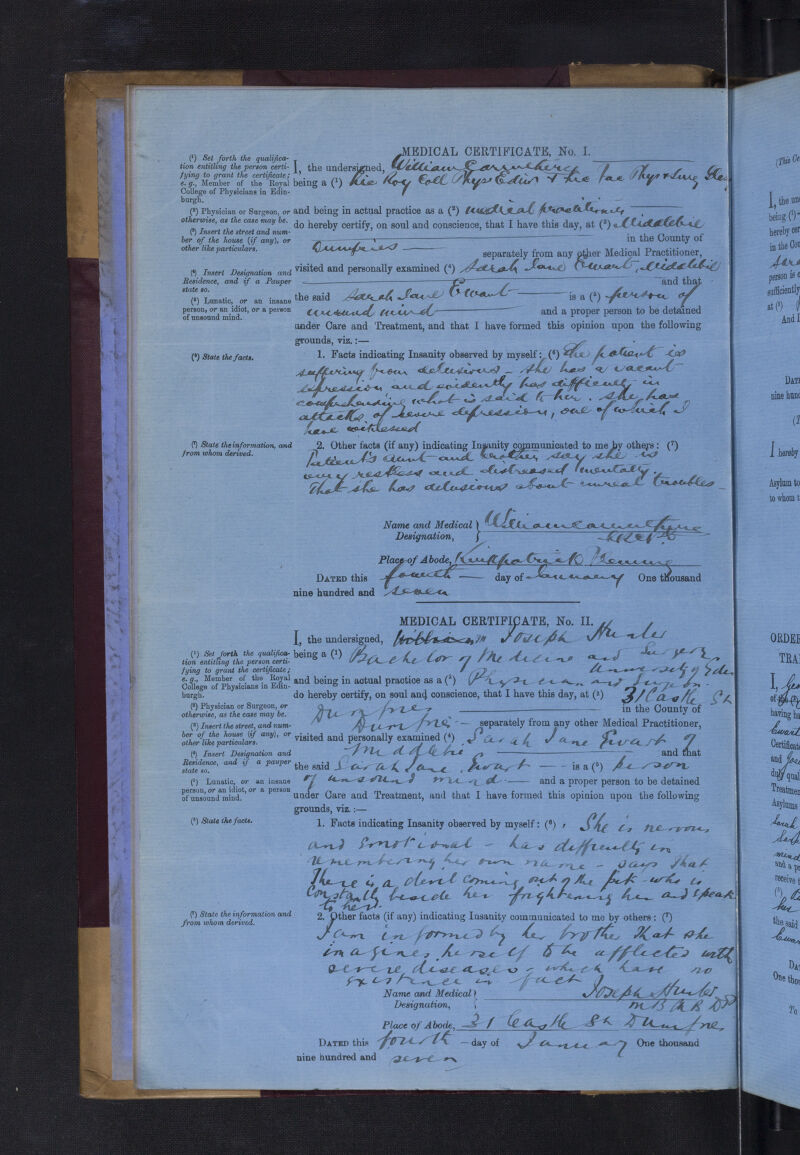 MEDICAL CERTIFICATE, No. I.
(¹) Set forth the qualifica-
tion entitling the person certi-
fying to grant the certificate;
e.g., Member of the Royal
College of Physicians in Edin-
burgh.
(²) Physician or Surgeon, or
otherwise, as the case may be.
(³) Insert the street and num-
ber of the house (if any), or
other like particulars.
(⁴) Insert Designation and
Residence, and if a Pauper
state so.
(⁵) Lunatic, or an insane
person, or an idiot, or a person
of unsound mind.
I, the undersigned, William Carruthers
being a (¹) Lic Roy Coll Phys Edin & Lic Fac Phys & Surg Glas
and being in actual practice as a (²) medical practitioner
do hereby certify, on soul and conscience, that I have this day, at (³) Middlebie
in the County of
Dumfries separately from any other Medical Practitioner,
visited and personally examined (⁴) Sarah Jane Ewart, Middlebie
and that
the said Sarah Jane Ewart is a (⁵) person of
unsund mind and a proper person to be detained
under Care and Treatment, and that I have formed this opinion upon the following
grounds, viz.:—
(⁶) State the facts.
1. Facts indicating Insanity observed by myself: (⁶) The patient is
suffering from delusions - she has a vacant
expression and evidently has difficulty in
comprehending what is said to her. She has
attacks of severe depression, one of which I
have witnessed
(⁷) State the information, and
from whom derived.
2. Other facts (if any) indicating Insanity communicated to me by others: (⁷)
Patient's aunt and brother say she is
very restless and distressed mentally.
That she has delusions about unreal troubles
Name and Medical Designation, William Carruthers
Place of Abode, Kirkpatrick Fleming
DATED this fourth day of January One thousand
nine hundred and seven
MEDICAL CERTIFICATE, No. II.
(¹) Set forth the qualifica-
tion entitling the person certi-
fying to grant the certificate;
e.g., Member of the Royal
College of Physicians in Edin-
burgh.
(²) Physician or Surgeon, or
otherwise, as the case may be.
(³) Insert the street, and num-
ber of the house (if any), or
other like particulars.
(⁴) Insert Designation and
Residence, and if a pauper
state so.
(⁵) Lunatic, or an insane
person, or an idiot, or a person
of unsound mind.
I, the undersigned, Joseph Hunter
being a (¹) Bachelor of Medicine and Surgery
University of Edin
and being in actual practice as a (²) Physician and Surgeon
do hereby certify, on soul and conscience, that I have this day, at (³) 31 Castle St
Dumfries in the County of
Dumfries separately from any other Medical Practitioner,
visited and personally examined (⁴) Sarah Jane Ewart of
Middlebie and that
the said Sarah Jane Ewart is a (⁵) person
of unsound mind and a proper person to be detained
under Care and Treatment, and that I have formed this opinion upon the following
grounds, viz.:—
(⁶) State the facts.
1. Facts indicating Insanity observed by myself: (⁶) She is nervous
and Emotional - has difficulty in
remembering her own name - says that
There is a devil coming out of the pit who is
constantly beside her frightening her and speaks
to her.
(⁷) State the information and
from whom derived.
2. Other facts (if any) indicating Insanity communicated to me by others: (⁷)
I am informed by her brother that she
imagines herself to be afflicted with
severe diseases - which have no
existence in fact
Name and Medical Designation, Joseph Hunter
M B Ch B
Place of Abode, 31 Castle St Dumfries
DATED this fourth day of January One thousand
nine hundred and seven
(This Ce
I, the un
being (¹)
hereby cer
in the Co
person is
sufficiently
at (³)
And I
DAT
nine hund
I hereby
Asylum to
to whom t
ORDER
TRA
I, Geo
of the
having ha
Ewart
Certificat
and Jos
duly qual
Treatmen
Asylums
Sarah
mind
and a p
receive t
the said
Ewart
DA
One thou
To